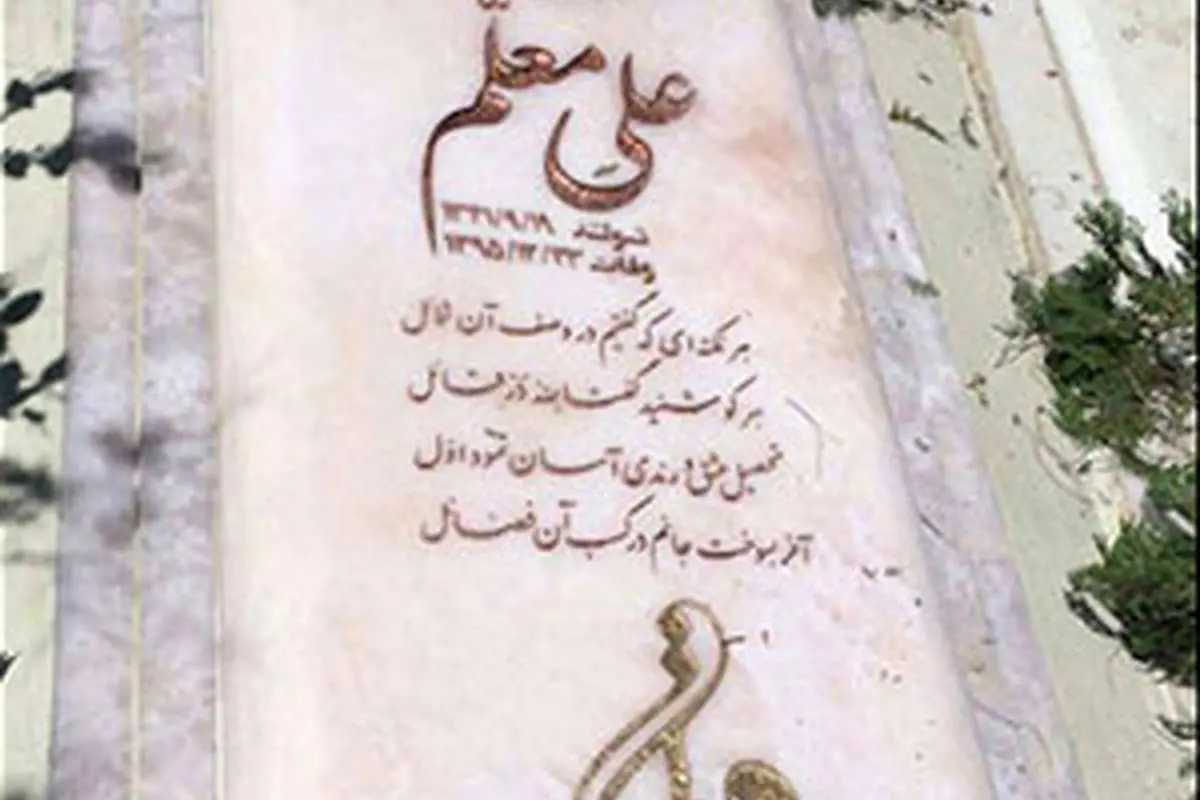 علی معلم
تولد ۱۳۴۱/۹/۱۹
وفات ۱۳۹۵/۱۲/۲۳
هر نکته ای که گفتم در وصف آن شمائل
هر کو شنید گفتا لله در قائل
تحصیل عشق و رندی آسان نمود اول
آخر بسوخت جانم در کسب آن فضائل